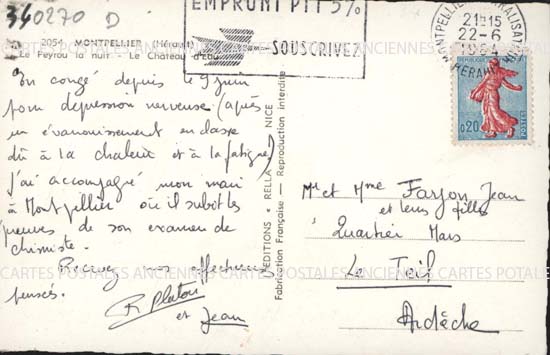 340270 D
2054 MONTPELLIER (Hérault)
Le Peyrou la nuit - Le Château d'Eau
EMPRUNT PTT 5%
SOUSCRIVEZ
MONTPELLIER
21H15
22-6
HERAULT
0,20
POSTES
En congé depuis le 9 juin
pour dépression nerveuse (après
un évanouissement en classe
dû à la chaleur et à la fatigue)
j'ai accompagné mon mari
à Montpellier où il subit les
épreuves de son examen de
chimiste.
Recevez nos affectueuses
pensées.
R Platon
et Jean
EDITIONS • RELLA • NICE
Fabrication Française — Reproduction interdite
Mr et Mme Farjon Jean
et leurs filles
Quartier Mars
Le Teil
Ardèche
CARTES POSTALES ANCIENNES CARTES POSTALES ANCIENNES